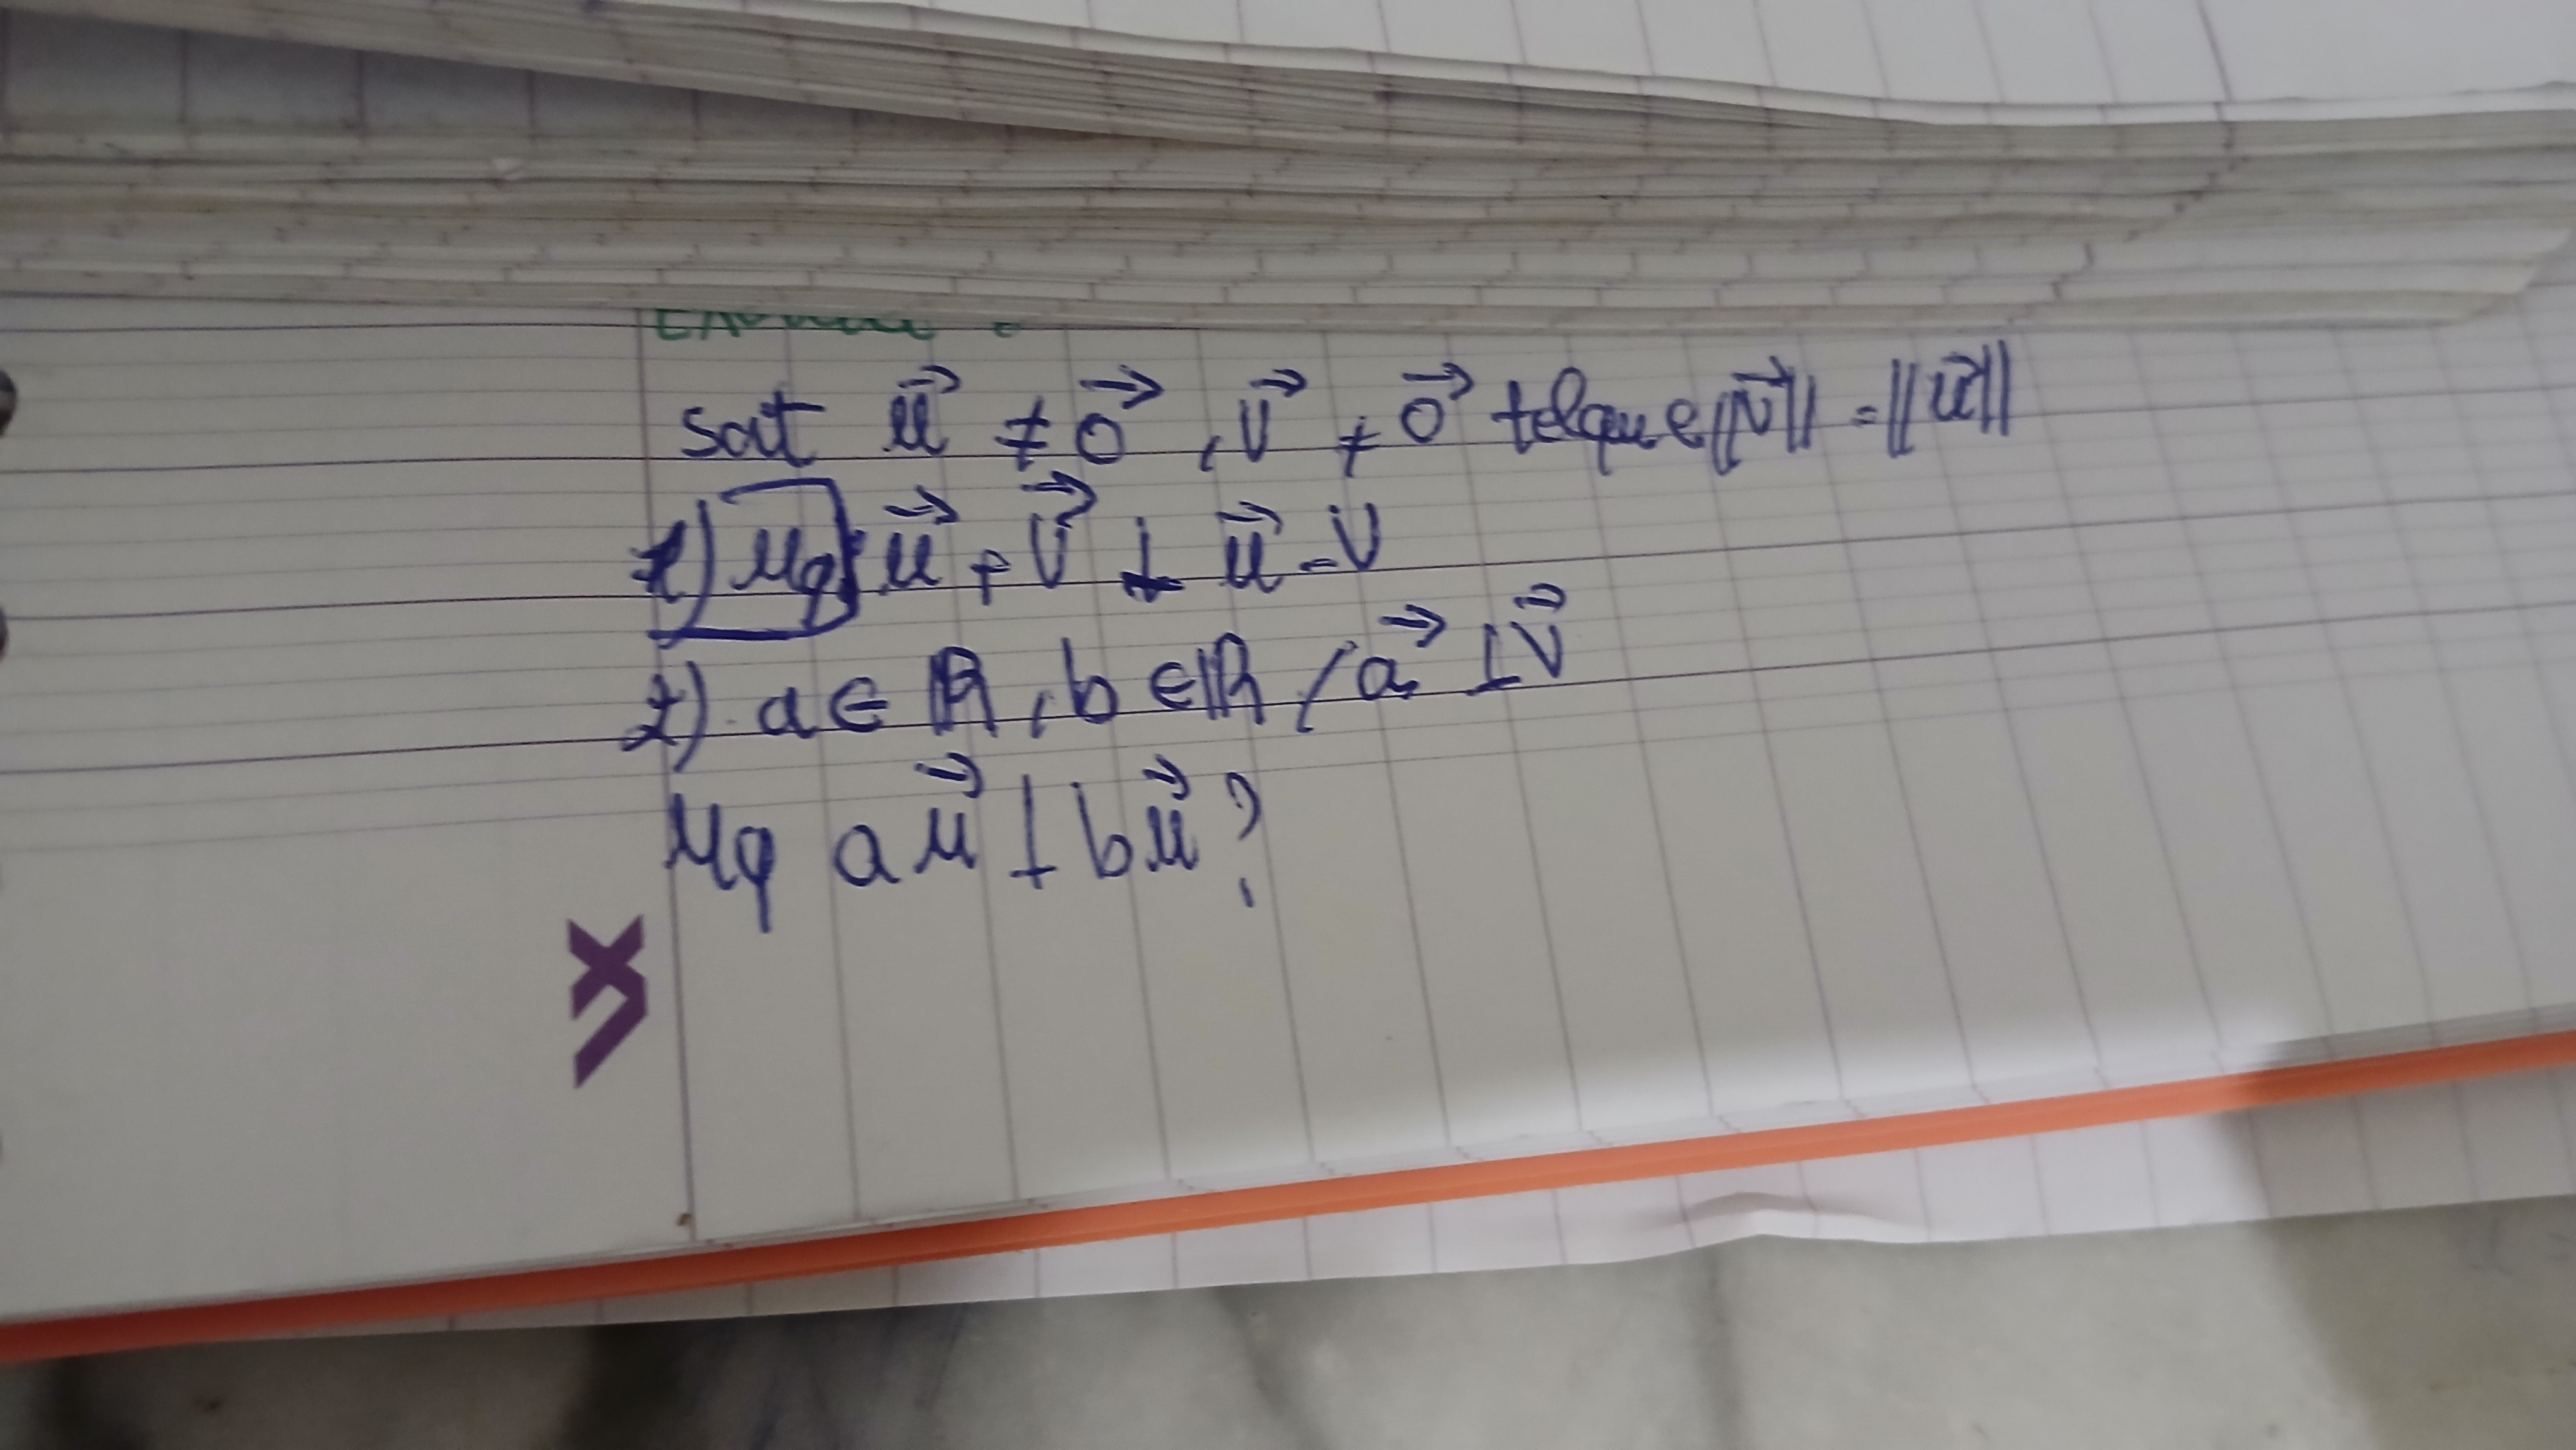 soit u⃗ ≠ 0⃗ , v⃗ ≠ 0⃗ telque ||v⃗|| = ||u⃗||
1) Mq u⃗ + v⃗ ⊥ u⃗ - v
2) a ∈ ℝ , b ∈ ℝ / a⃗ ⊥ v⃗
Mq a u⃗ ⊥ b u⃗ ?